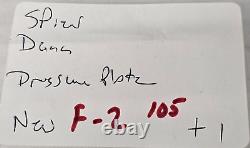 Spicer
Dana
Pressure Plate
New F-2 105 + 1